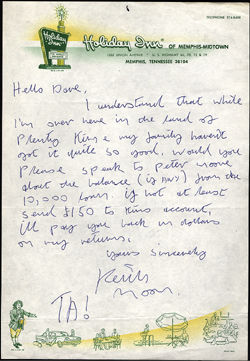 Holiday Inn
Holiday Inn OF MEMPHIS-MIDTOWN
MEMPHIS, TENNESSEE 38104
Hello Dave,
I understand that while
I'm over here in the land of
Plenty Kim & my family haven't
got it quite so good. Would you
Please speak to peter
about the balance (if any) from the
10,000 loan. if not at least
send £150 to Kims account,
I'll pay you back in dollars
on my return.
yours Sincerely
Keith
Moon.
TA!